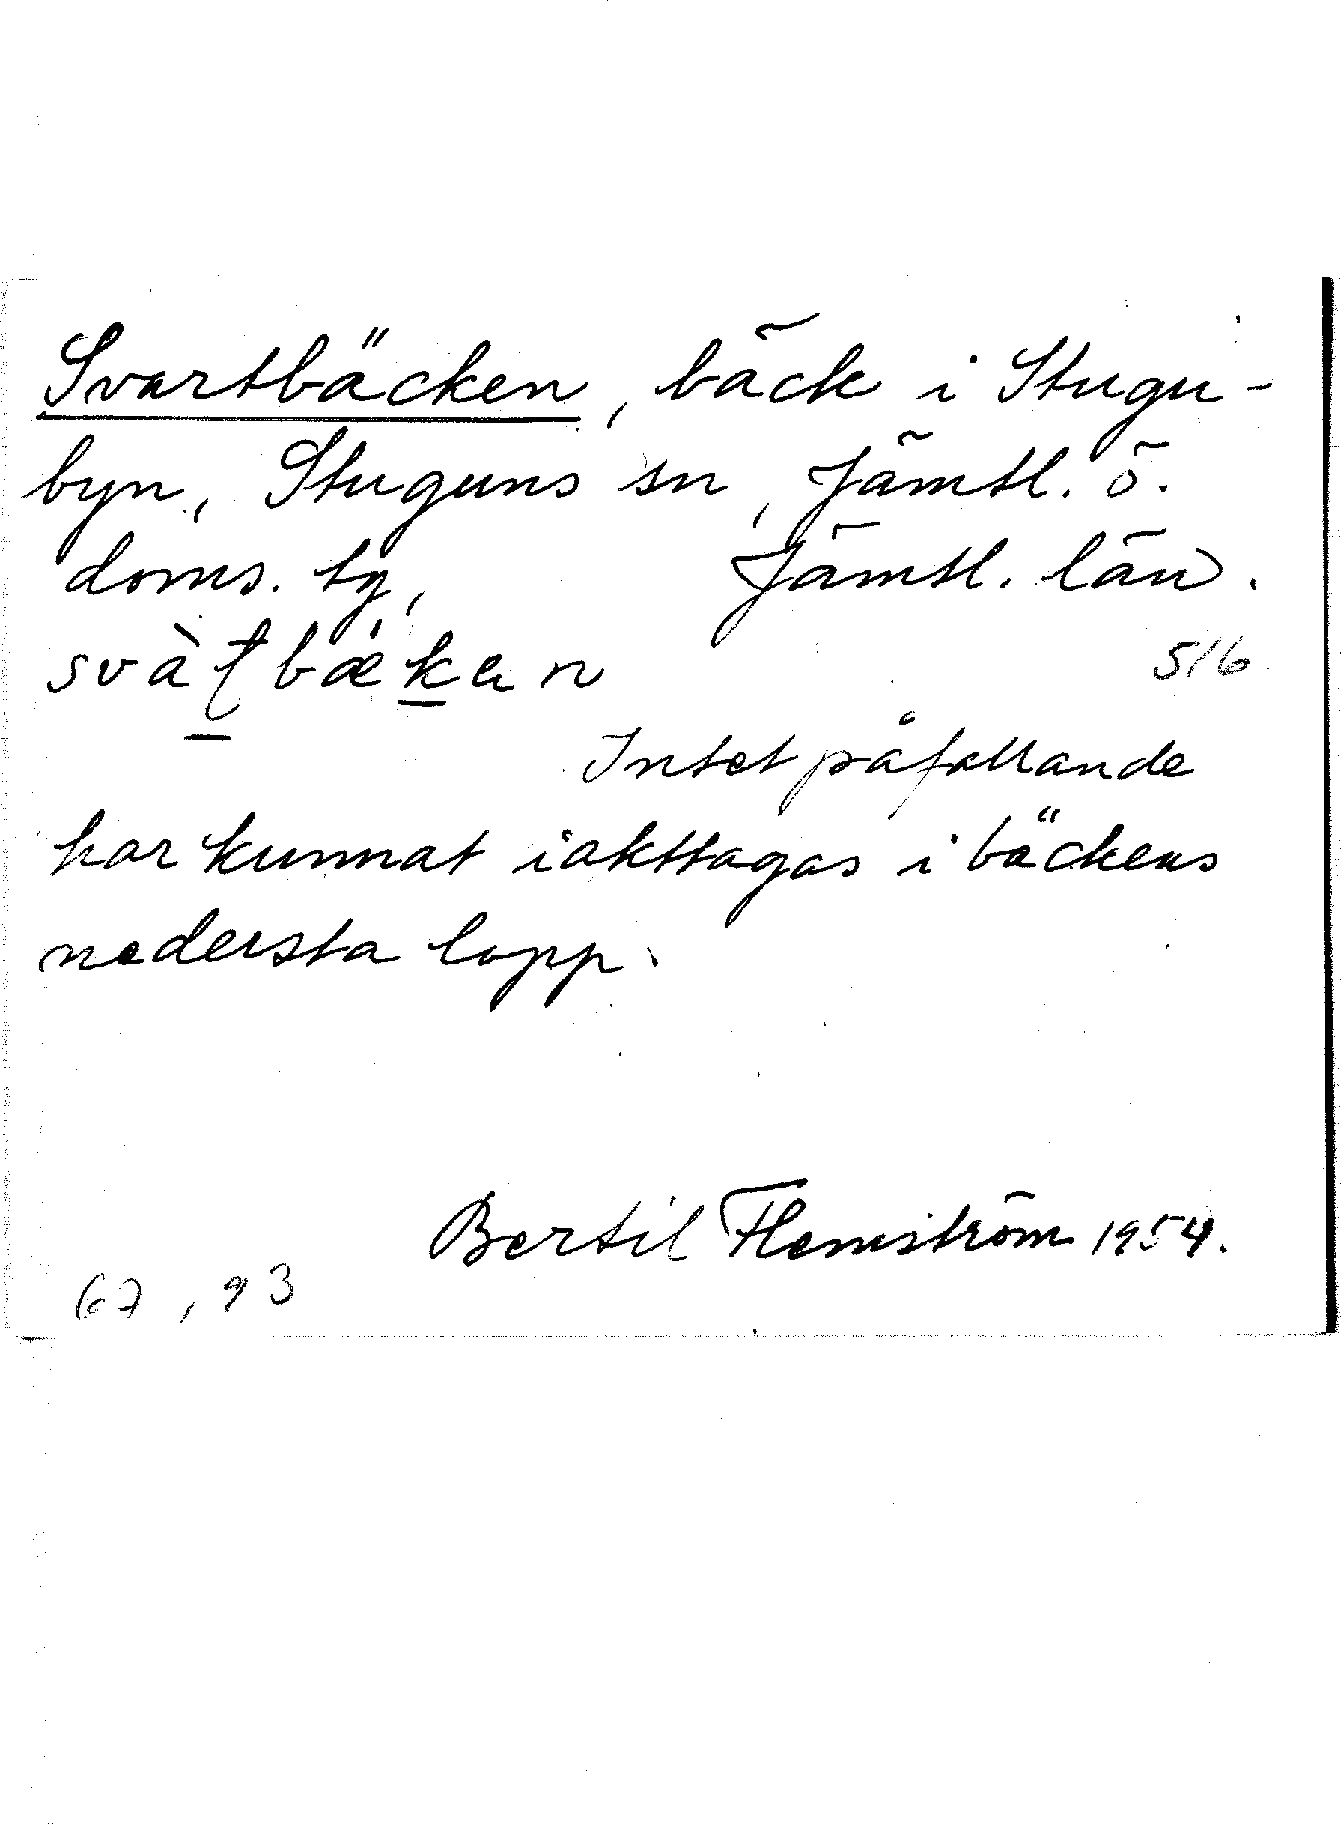 Svartbäcken, bäck i Stugu-
byn, Stuguns sn, Jämtl. ö.
doms. tg, Jämtl. län.
svàʈbǽkan 516
Intet påfallande
har kunnat iakttagas i bäckens
nedersta lopp.
Bertil Flemström 1954.
67, 93